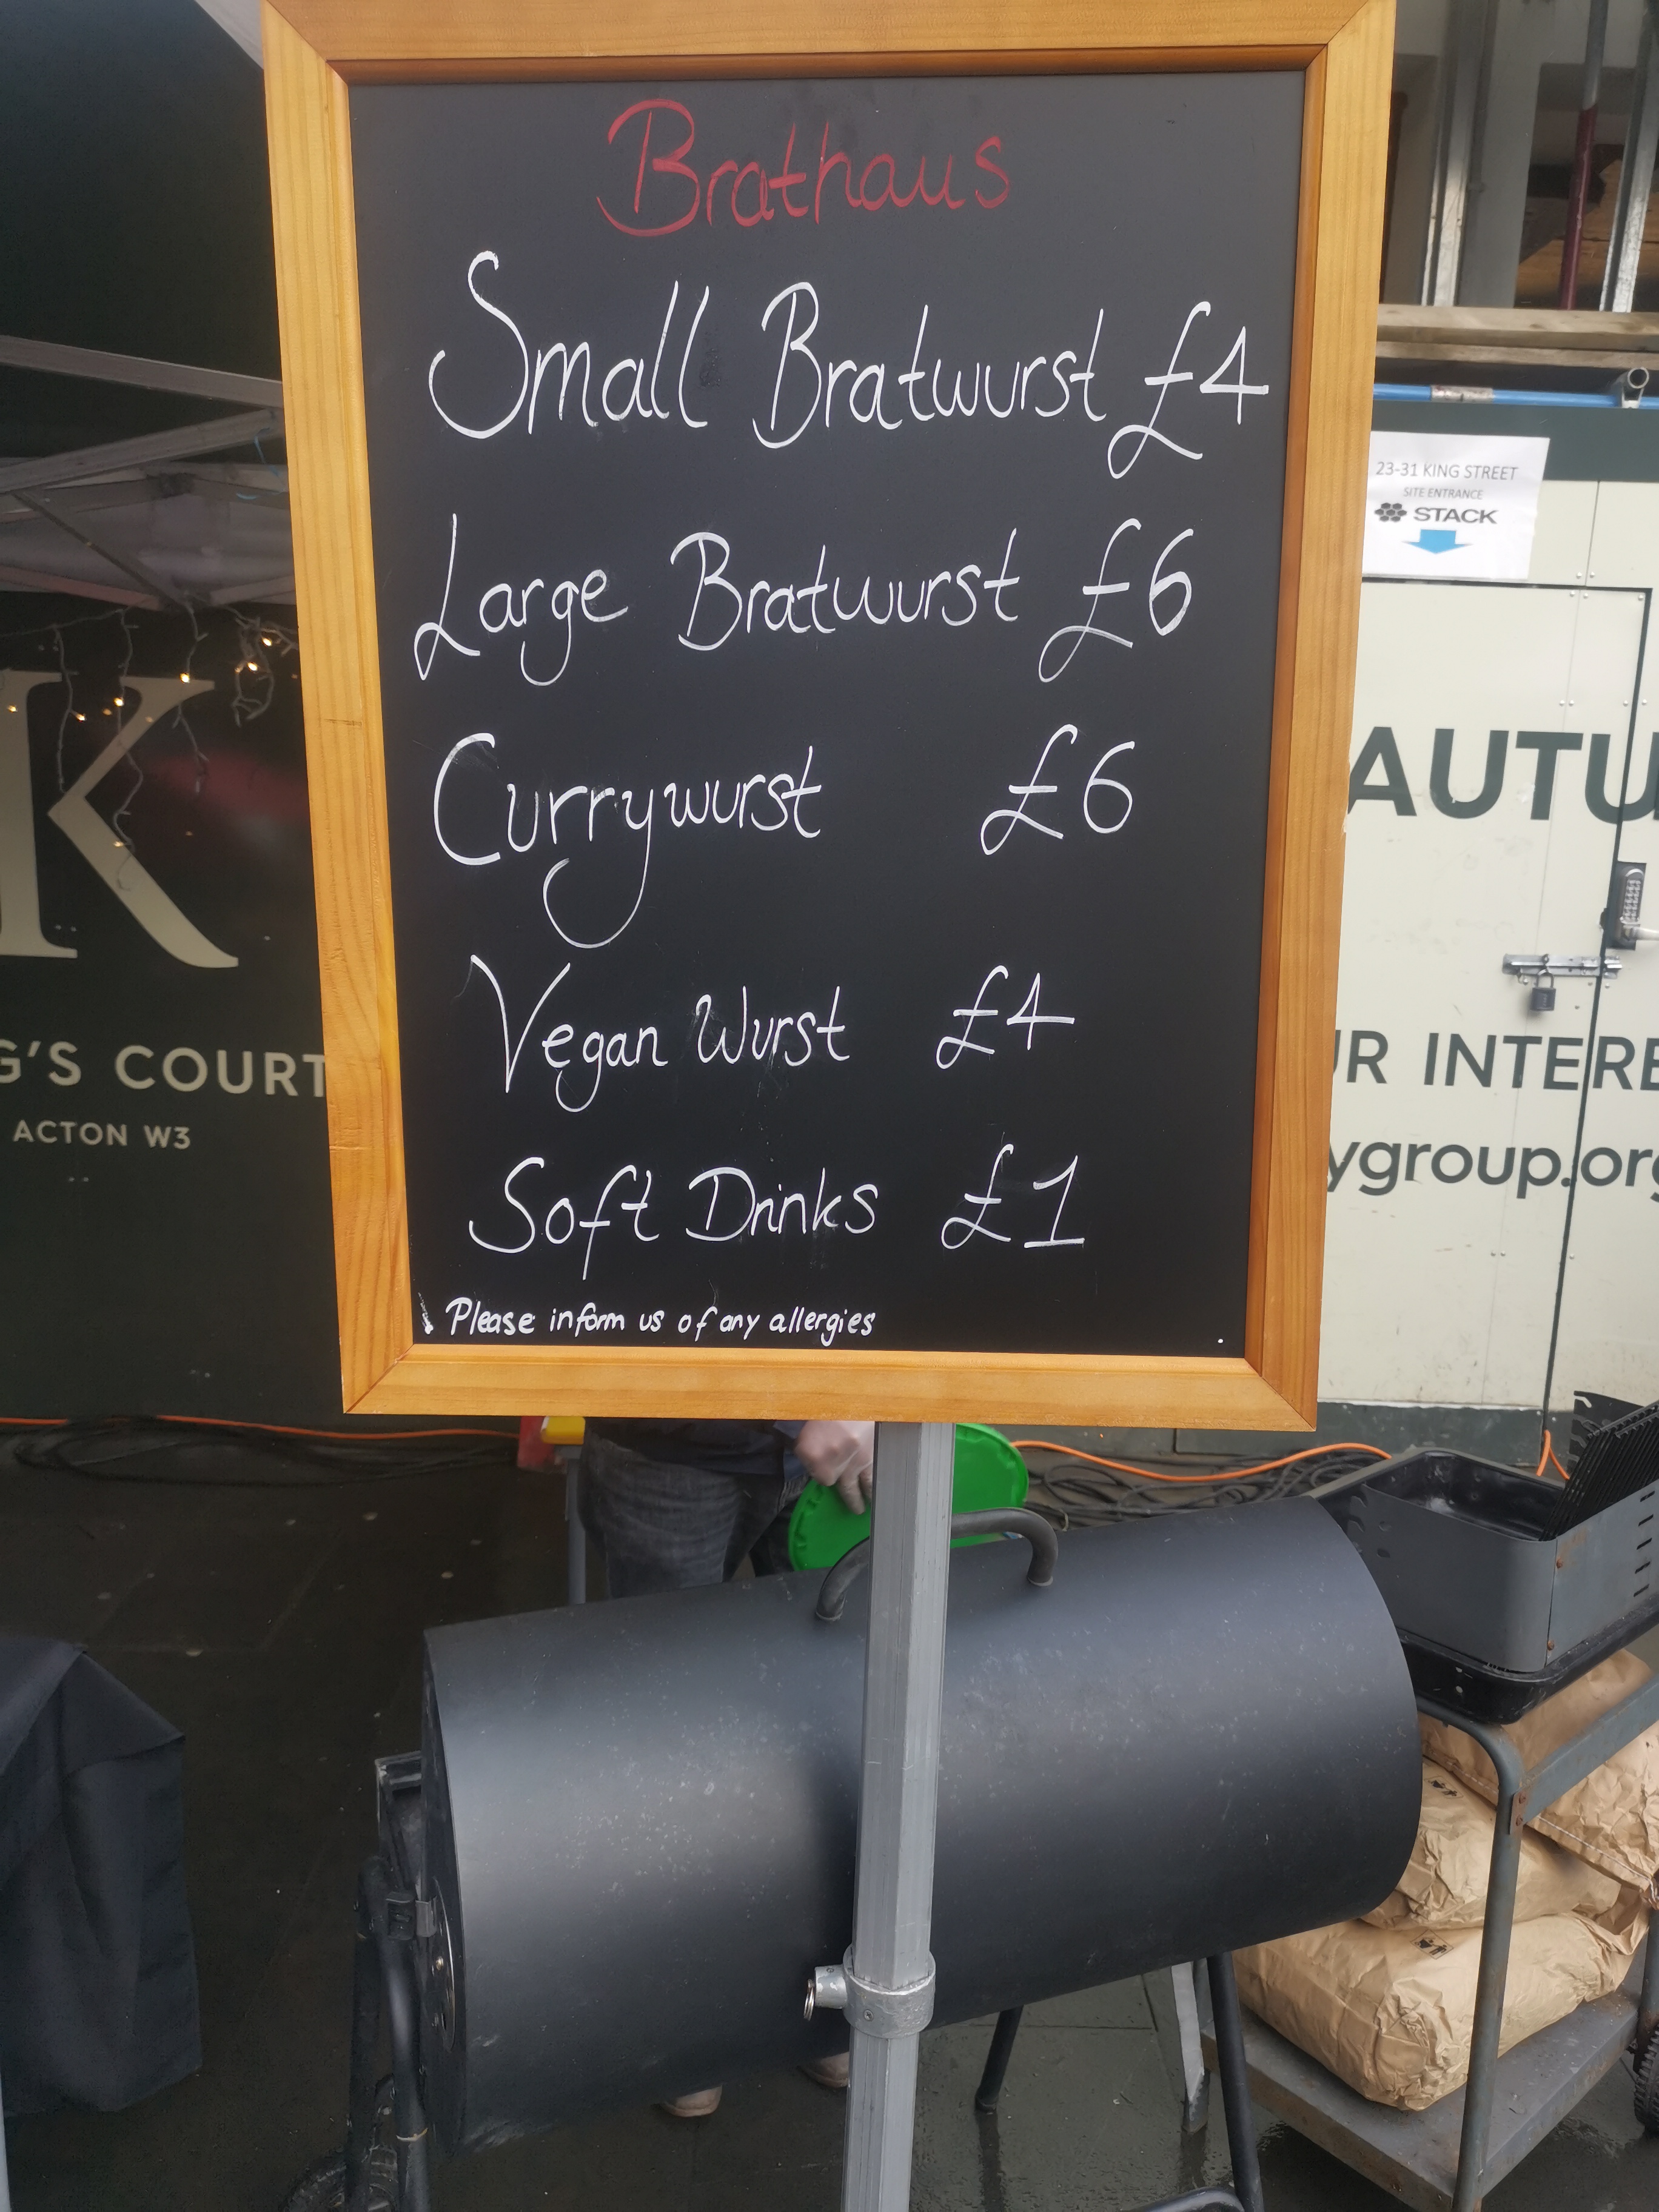 Brathaus
Small Bratwurst £4
Large Bratwurst £6
Currywurst £6
Vegan Wurst £4
Soft Drinks £1
Please inform us of any allergies
23-31 KING STREET
SITE ENTRANCE
STACK
K
G'S COURT
ACTON W3
AUTU
UR INTERE
ygroup.org